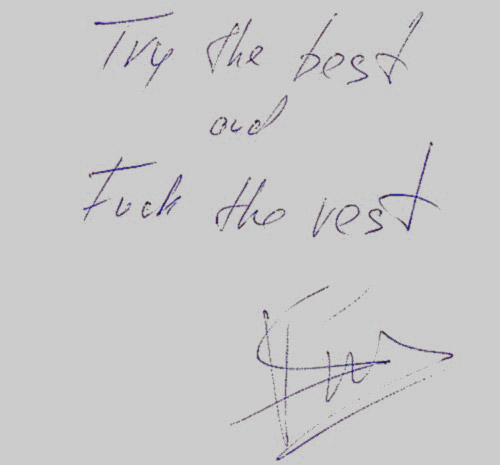 Try the best
and
Fuck the rest